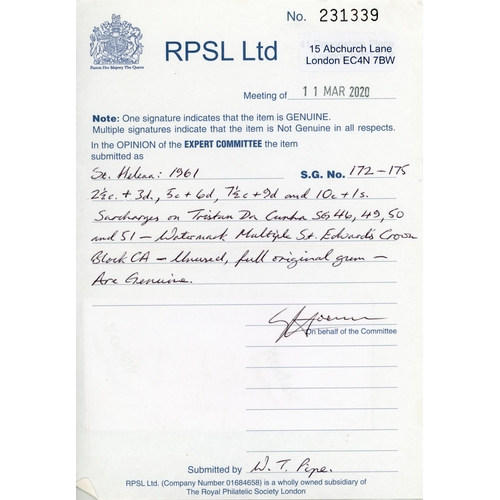 No. 231339
RPSL Ltd
15 Abchurch Lane
London EC4N 7BW
Patron Her Majesty The Queen
Meeting of 11 MAR 2020
Note: One signature indicates that the item is GENUINE.
Multiple signatures indicate that the item is Not Genuine in all respects.
In the OPINION of the EXPERT COMMITTEE the item
submitted as
St. Helena: 1961 S.G. No. 172-175
2½c. + 3d., 5c + 6d, 7½c + 9d and 10c + 1s.
Surcharges on Tristan Da Cunha SG 46, 49, 50
and 51 – Watermark Multiple St. Edward's Crown
Block CA – Unused, full original gum –
Are Genuine.
On behalf of the Committee
Submitted by W. T. Pipe.
RPSL Ltd. (Company Number 01684658) is a wholly owned subsidiary of
The Royal Philatelic Society London